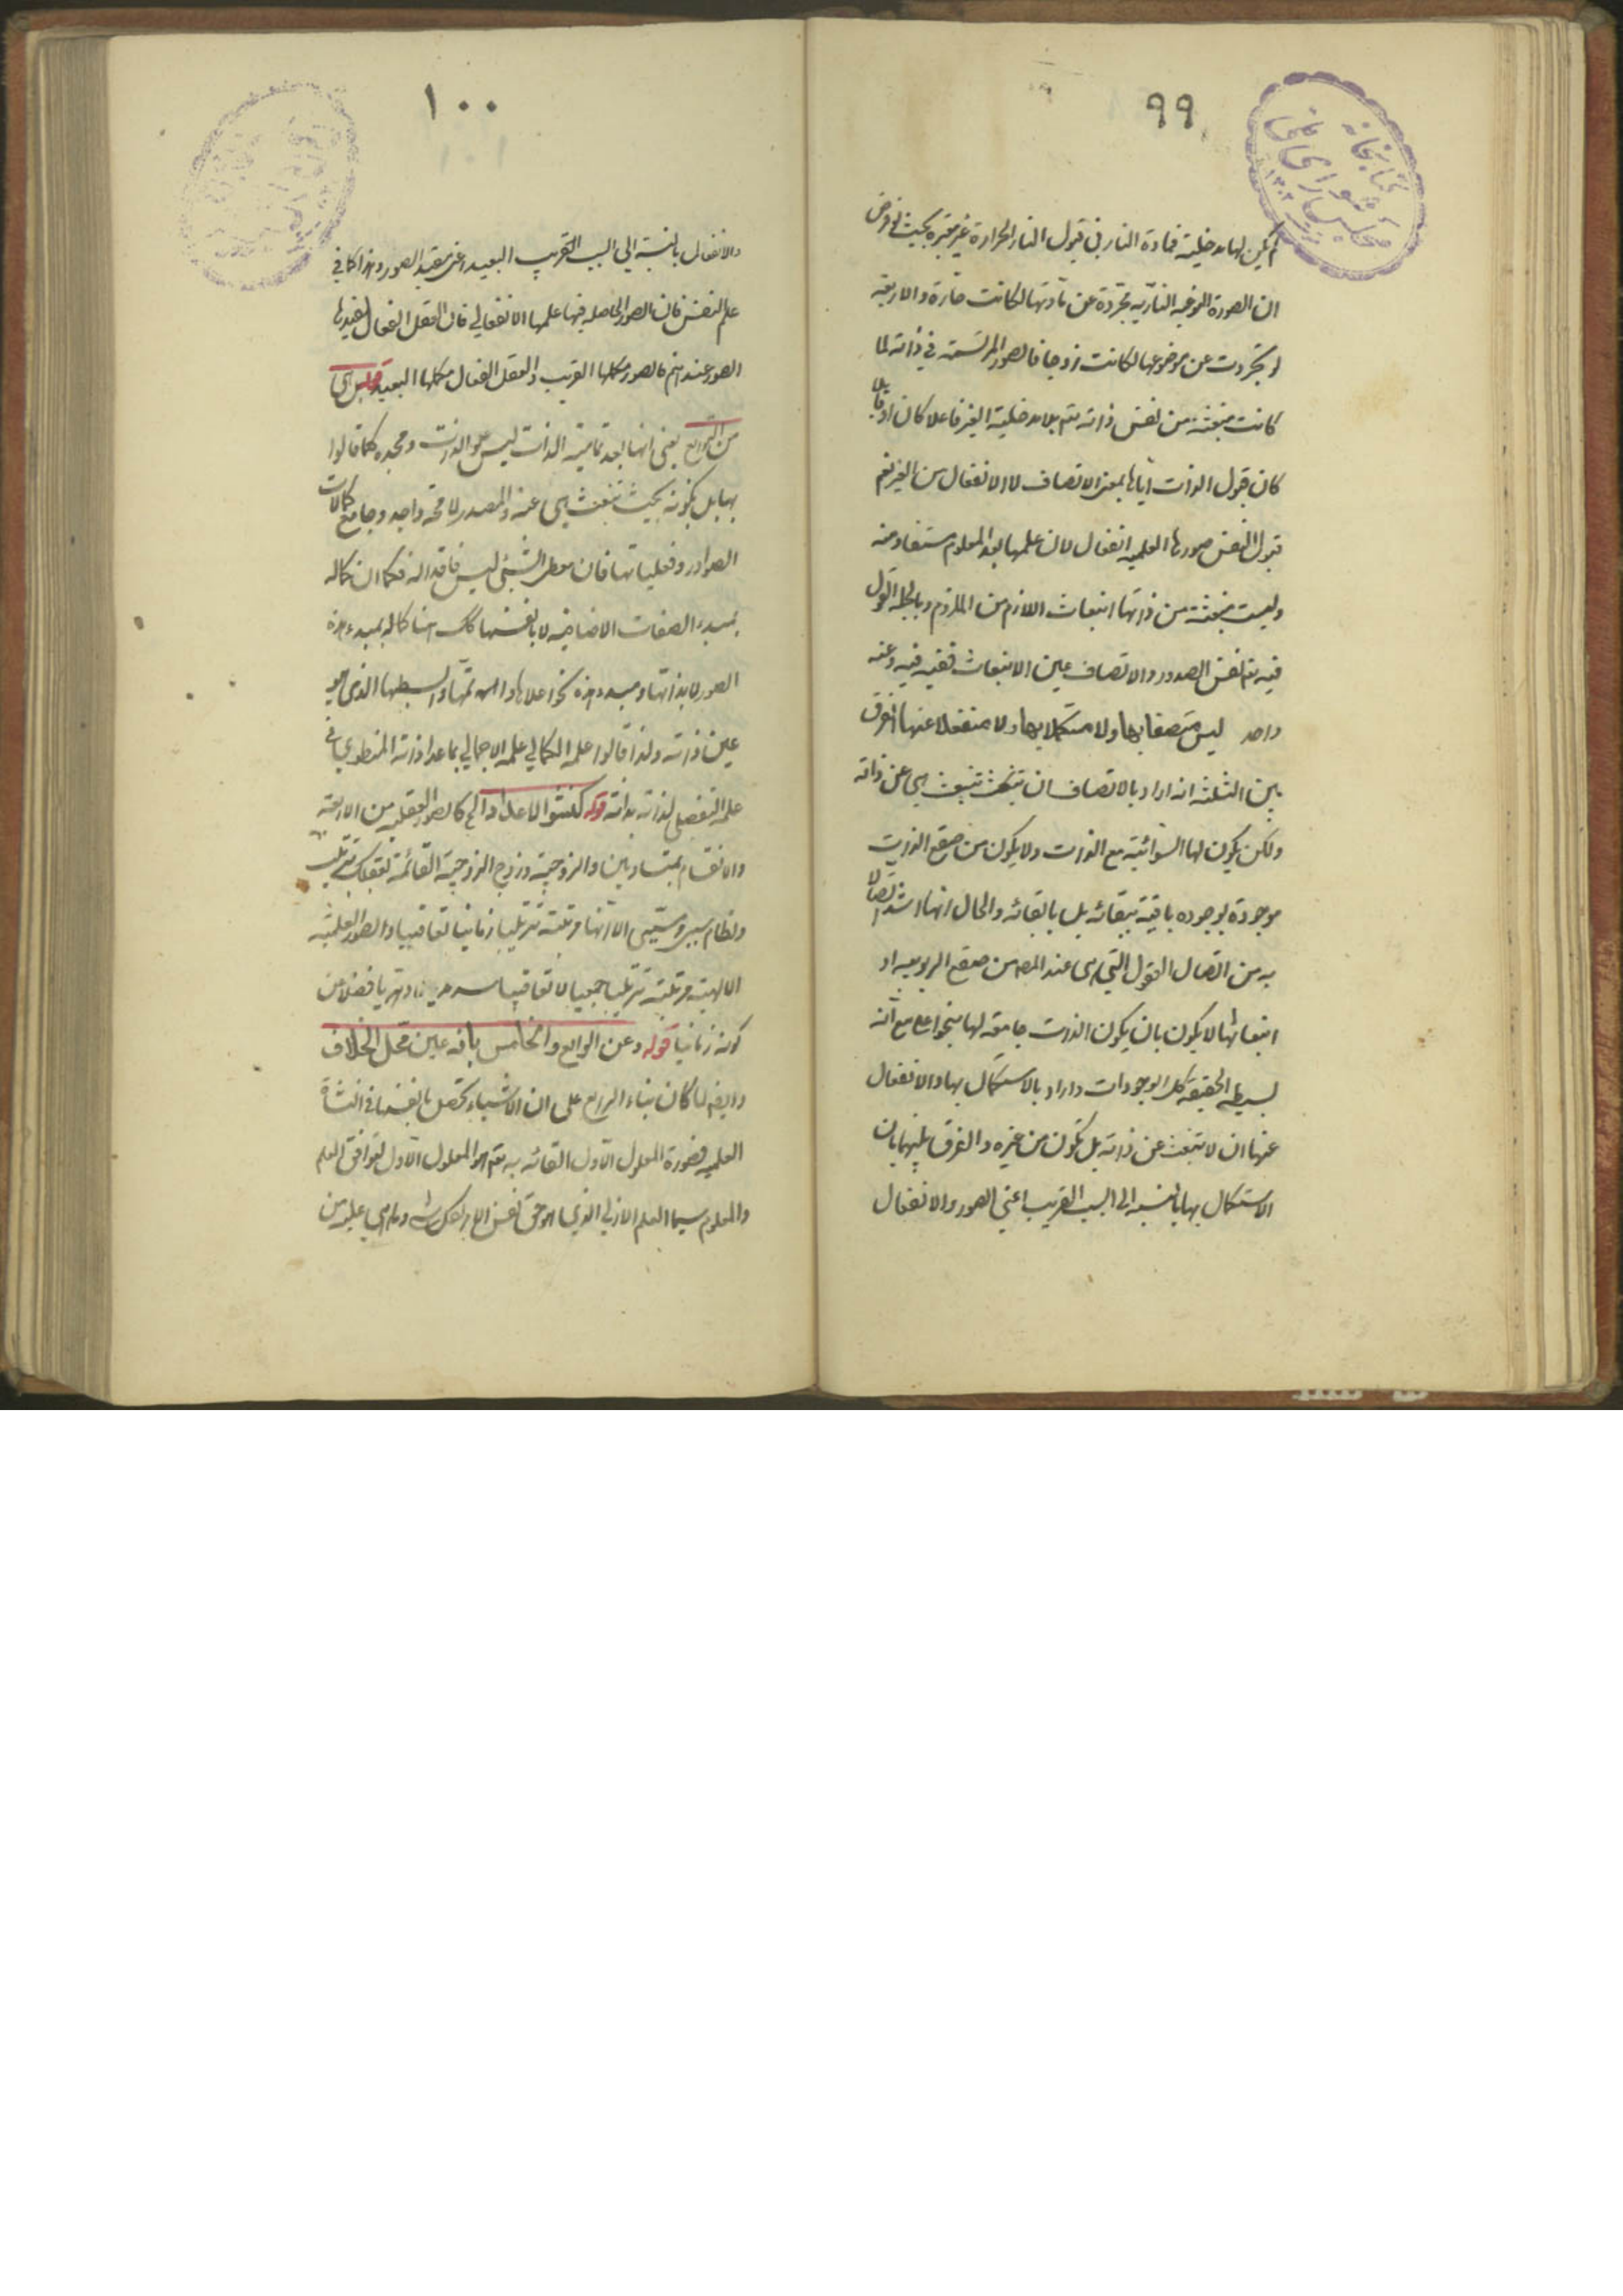 ٩٩
كتابخانه
مجلس شوراى ملى
لم يكن لها مدخلية فمادة النار في قبول النار الحرارة غير معتبرة بحيث لو فرض
ان الصورة النوعيه الناريه مجردة عن مادتها لكانت حارة والاربعة
لو تجردت عن موضوعها لكانت زوجا فالصور المرتسمة في ذاته لما
كانت منبعثة من نفس ذاته تم بلا مدخلية الغير فاعلا كان او قابلا
كان قبول الذات اياها بمعنى الاتصاف لا الانفعال من الغير نعم
قبول النفس صورها العلميه انفعال لان علمها بعد المعلوم مستفاد منه
وليست منبعثة من ذاتها انبعاث اللازم من الملزوم وبالجملة القول
فيه تم نفس الصدور والاتصاف عين الانبعاث ففيه فيه وعنه
واحد ليس متصفا بها ولا مستكملا بها ولا منفعلا عنها الفرق
بين الثلثة انه اراد بالاتصاف ان تنبعث هي عن ذاته
ولكن يكون لها السوائية مع الذات ولا يكون من صقع الذات
موجودة بوجوده باقية ببقائه بل بابقائه والحال انها اشد اتصالا
به من اتصال العقول التي هي عند المص من صقع الربوبيه او
انبعاثها لا يكون بان يكون الذات جامعة لها بنحو اعلى مع انه
بسيط الحقيقه كل الوجودات واراد بالاستكمال بها والانفعال
عنها ان لا تنبعث عن ذاته بل تكون من غيره والفرق بينهما بان
الاستكمال بها بالنسبه الى السبب القريب اعني الصور والانفعال
١٠٠
والانفعال بالنسبة الى السبب القريب البعيد اعنى مفيد الصور وهذا كما في
علم النفس فان الصور الحاصله فيها علمها الانفعالي فان العقل الفعال يفيدها
الصور عندهم فالصور مكملها القريب والعقل الفعال مكملها البعيد قوله بل هى
من التوابع يعنى انها بعد تمامية الذات ليس علو الذات ومجده كما قالوا
بها بل بكونه بحيث تنبعث هي عنه والمصدر لا محة واجد وجامع كمالات
الصوادر وفعلياتها فان معطى الشيئ ليس فاقدا له فكما ان كماله
بمبدء الصفات الاضافيه لا بانفسها كك هنا كماله بمبدء هذه
الصور لا بذاتها ومبدء هذه بنحو اعلاها واتمها وابسطها الذي هو
عين ذاته ولذا قالوا علمه الكمالي علمه الاجمالي بما عدا ذاته المنطوي في
علمه التفصيلى لذاته بذاته قوله كنشو الاعداد الخ كالصور العقلية من الاربعة
والانقسام بمتساويين والزوجية وزوج الزوجية القائمة بعقلك بترتيب
ونظام سببي ومسببي الا انها مرتبة ترتيبا زمانيا تعاقبيا والصور العلمية
الالهية مرتبة ترتيبا جمعيا لا تعاقبيا سرمديا لا دهريا فضلا عن
كونه زمانيا قوله وعن الرابع والخامس بانه عين محل الخلاف
وايضا لما كان بناء الرابع على ان الاشياء تحصل بانفسها في النشأة
العلميه فصورة المعلول الاول القائمه به تعم هو المعلول الاول لتوافق العلم
والمعلوم سيما العلم الازلي الذي هو حق نفس الامر